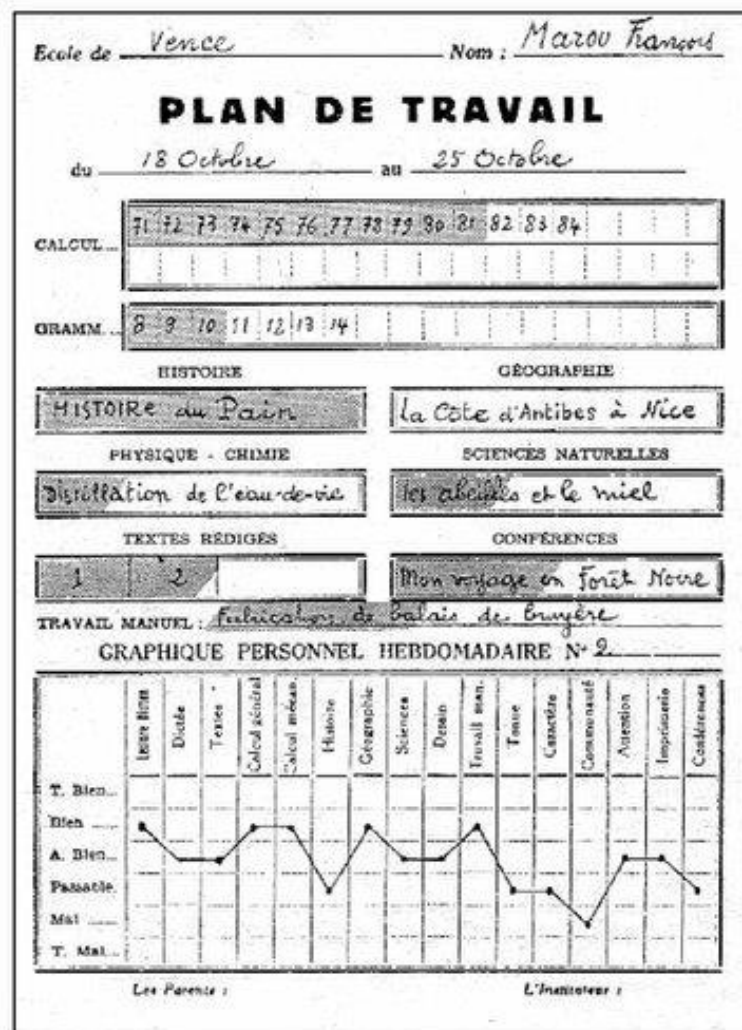 Ecole de Vence Nom : Marou François
PLAN DE TRAVAIL
du 18 Octobre au 25 Octobre
CALCUL... 71 72 73 74 75 76 77 78 79 80 81 82 83 84
GRAMM... 8 9 10 11 12 13 14
HISTOIRE GÉOGRAPHIE
HISTOIRE du Pain La Côte d'Antibes à Nice
PHYSIQUE - CHIMIE SCIENCES NATURELLES
Distillation de l'eau-de-vie les abeilles et le miel
TEXTES RÉDIGÉS CONFÉRENCES
1 2 Mon voyage en Forêt Noire
TRAVAIL MANUEL : Fabrication de balais de bruyère
GRAPHIQUE PERSONNEL HEBDOMADAIRE N° 2
Dictée Textes Calcul général Calcul mécan. Histoire Géographie Sciences Dessin Travail man. Tenue Caractère Communauté Attention Imprimerie Conférences
T. Bien...
Bien ......
A. Bien...
Passable.
Mal ......
T. Mal...
Les Parents : L'Instituteur :